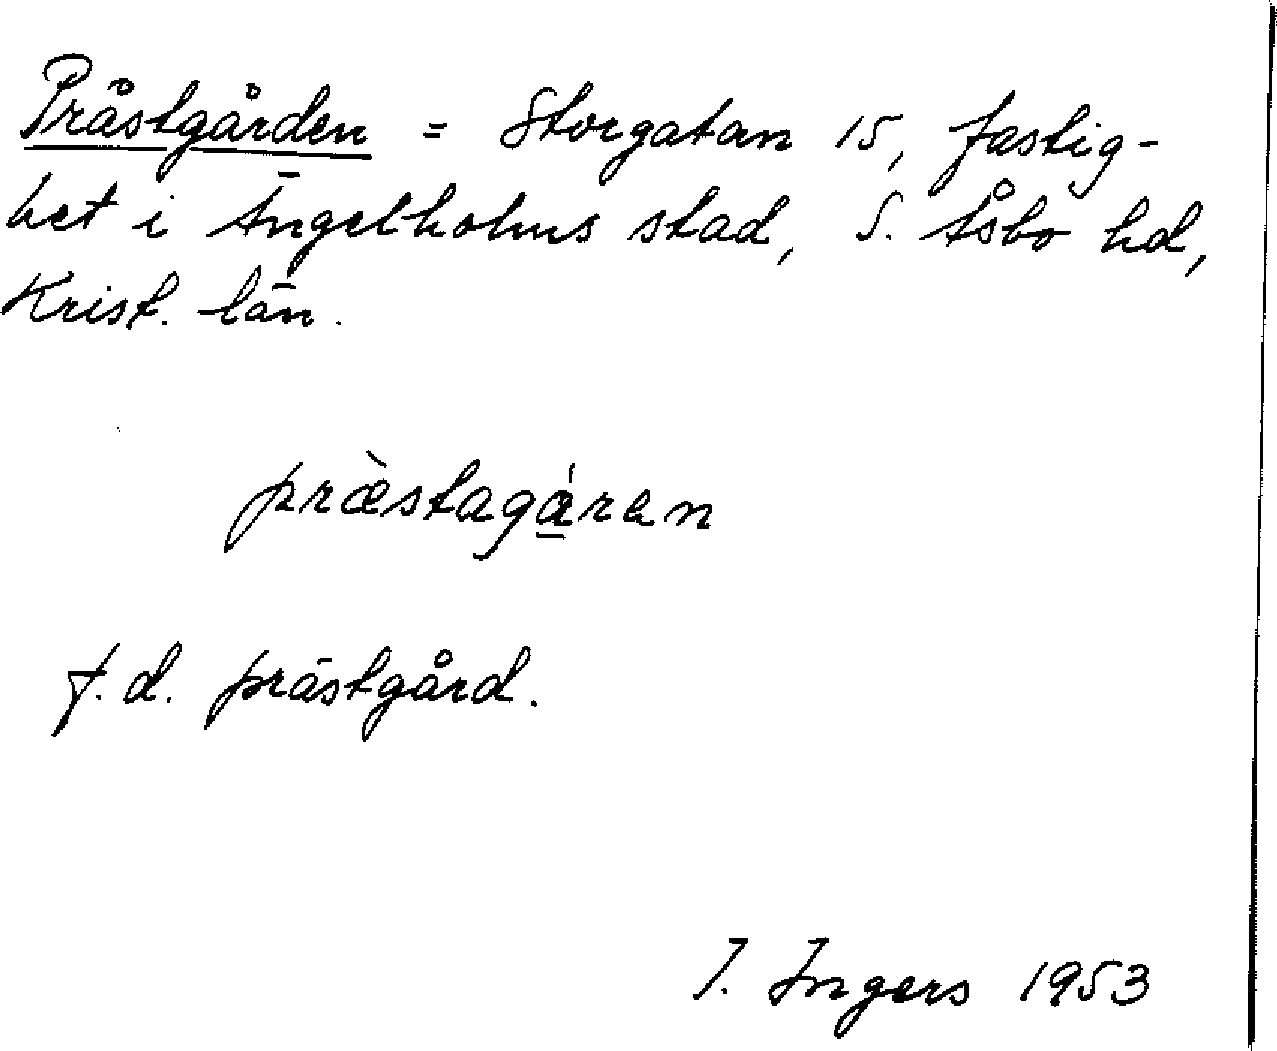 Prästgården = Storgatan 15, fastig-
het i Ängelholms stad, S. Åsbo hd,
Krist. län.
præ̀stagá̱ren
f.d. prästgård.
I. Ingers 1953